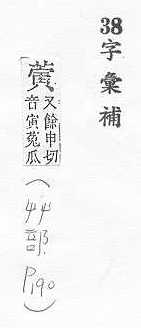 38字彙補
又餘申切
音寅菟瓜
(艸部P190)